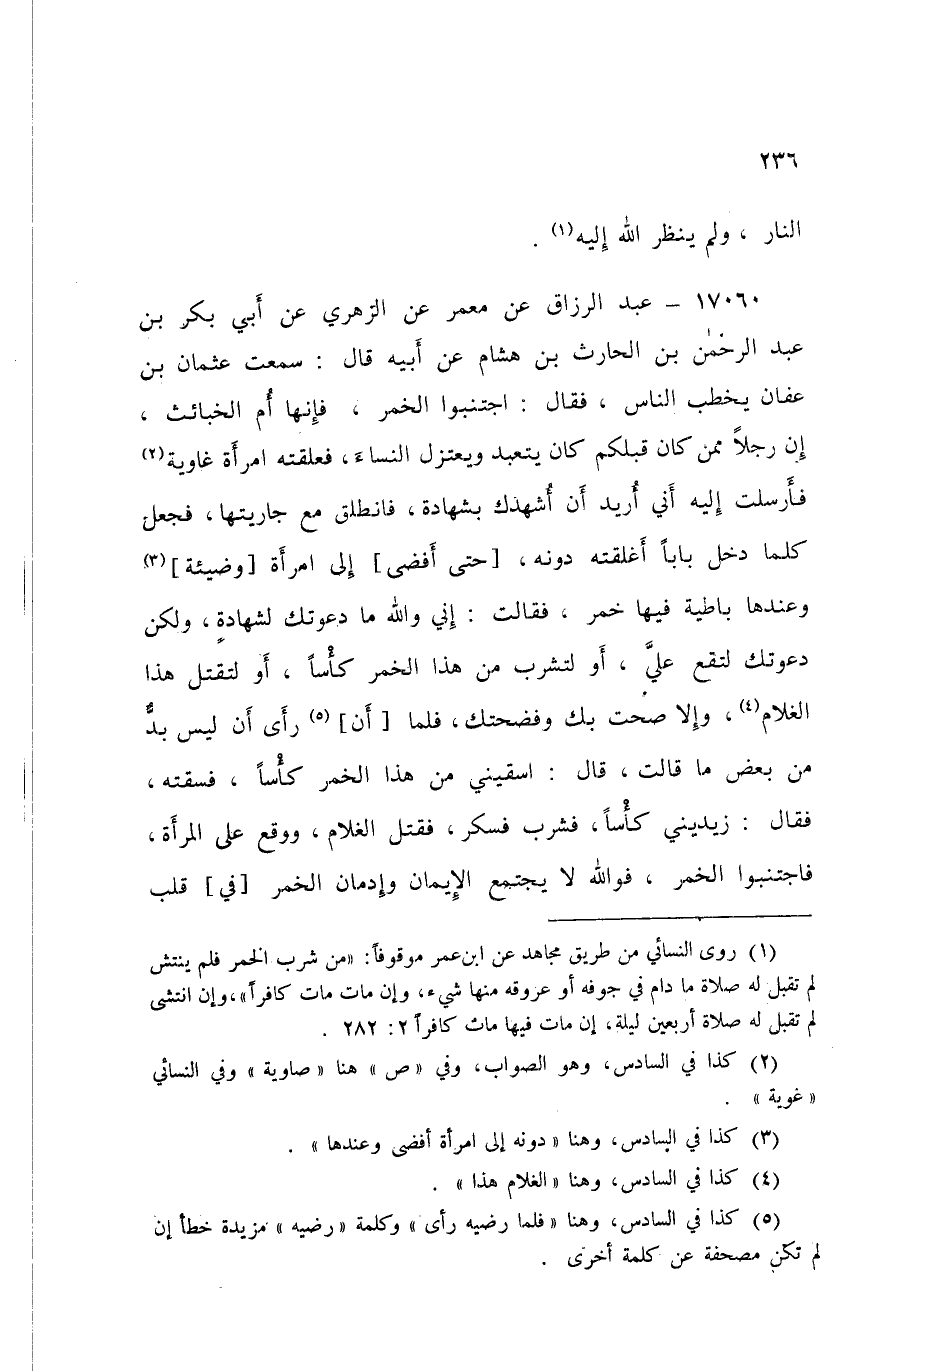 ٢٣٦
النار ، ولم ينظر الله إليه(١) .
١٧٠٦٠ – عبد الرزاق عن معمر عن الزهري عن أبي بكر بن
عبد الرحمٰن بن الحارث بن هشام عن أبيه قال : سمعت عثمان بن
عفان يخطب الناس ، فقال : اجتنبوا الخمر ، فإنها أُم الخبائث ،
إن رجلاً ممن كان قبلكم كان يتعبد ويعتزل النساءَ ، فعلقته امرأة غاوية(٢)
فأَرسلت إليه أَني أُريد أَن أُشهدك بشهادة ، فانطلق مع جاريتها ، فجعل
كلما دخل باباً أَغلقته دونه ، [حتى أَفضى] إلى امرأَة [وضيئة](٣)
وعندها باطية فيها خمر ، فقالت : إني والله ما دعوتك لشهادةٍ ، ولكن
دعوتك لتقع عليَّ ، أَو لتشرب من هذا الخمر كأْساً ، أَو لتقتل هذا
الغلام(٤) ، وإلا صحت بك وفضحتك ، فلما [ أَن](٥) رأَى أَن ليس بدٌّ
من بعض ما قالت ، قال : اسقيني من هذا الخمر كأْساً ، فسقته ،
فقال : زيديني كأْساً ، فشرب فسكر ، فقتل الغلام ، ووقع على المرأَة ،
فاجتنبوا الخمر ، فوالله لا يجتمع الإيمان وإدمان الخمر [في] قلب
(١) روى النسائي من طريق مجاهد عن ابن عمر موقوفاً: «من شرب الخمر فلم ينتش
لم تقبل له صلاة ما دام في جوفه أو عروقه منها شيء، وإن مات مات كافراً»، وإن انتشى
لم تقبل له صلاة أربعين ليلة، إن مات فيها مات كافراً ٢: ٢٨٢ .
(٢) كذا في السادس، وهو الصواب، وفي «ص» هنا «صاوية» وفي النسائي
«غوية» .
(٣) كذا في السادس، وهنا «دونه إلى امرأة أفضى وعندها» .
(٤) كذا في السادس، وهنا «الغلام هذا» .
(٥) كذا في السادس، وهنا «فلما رضيه رأى» وكلمة «رضيه» مزيدة خطأ إن
لم تكن مصحفة عن كلمة أخرى .